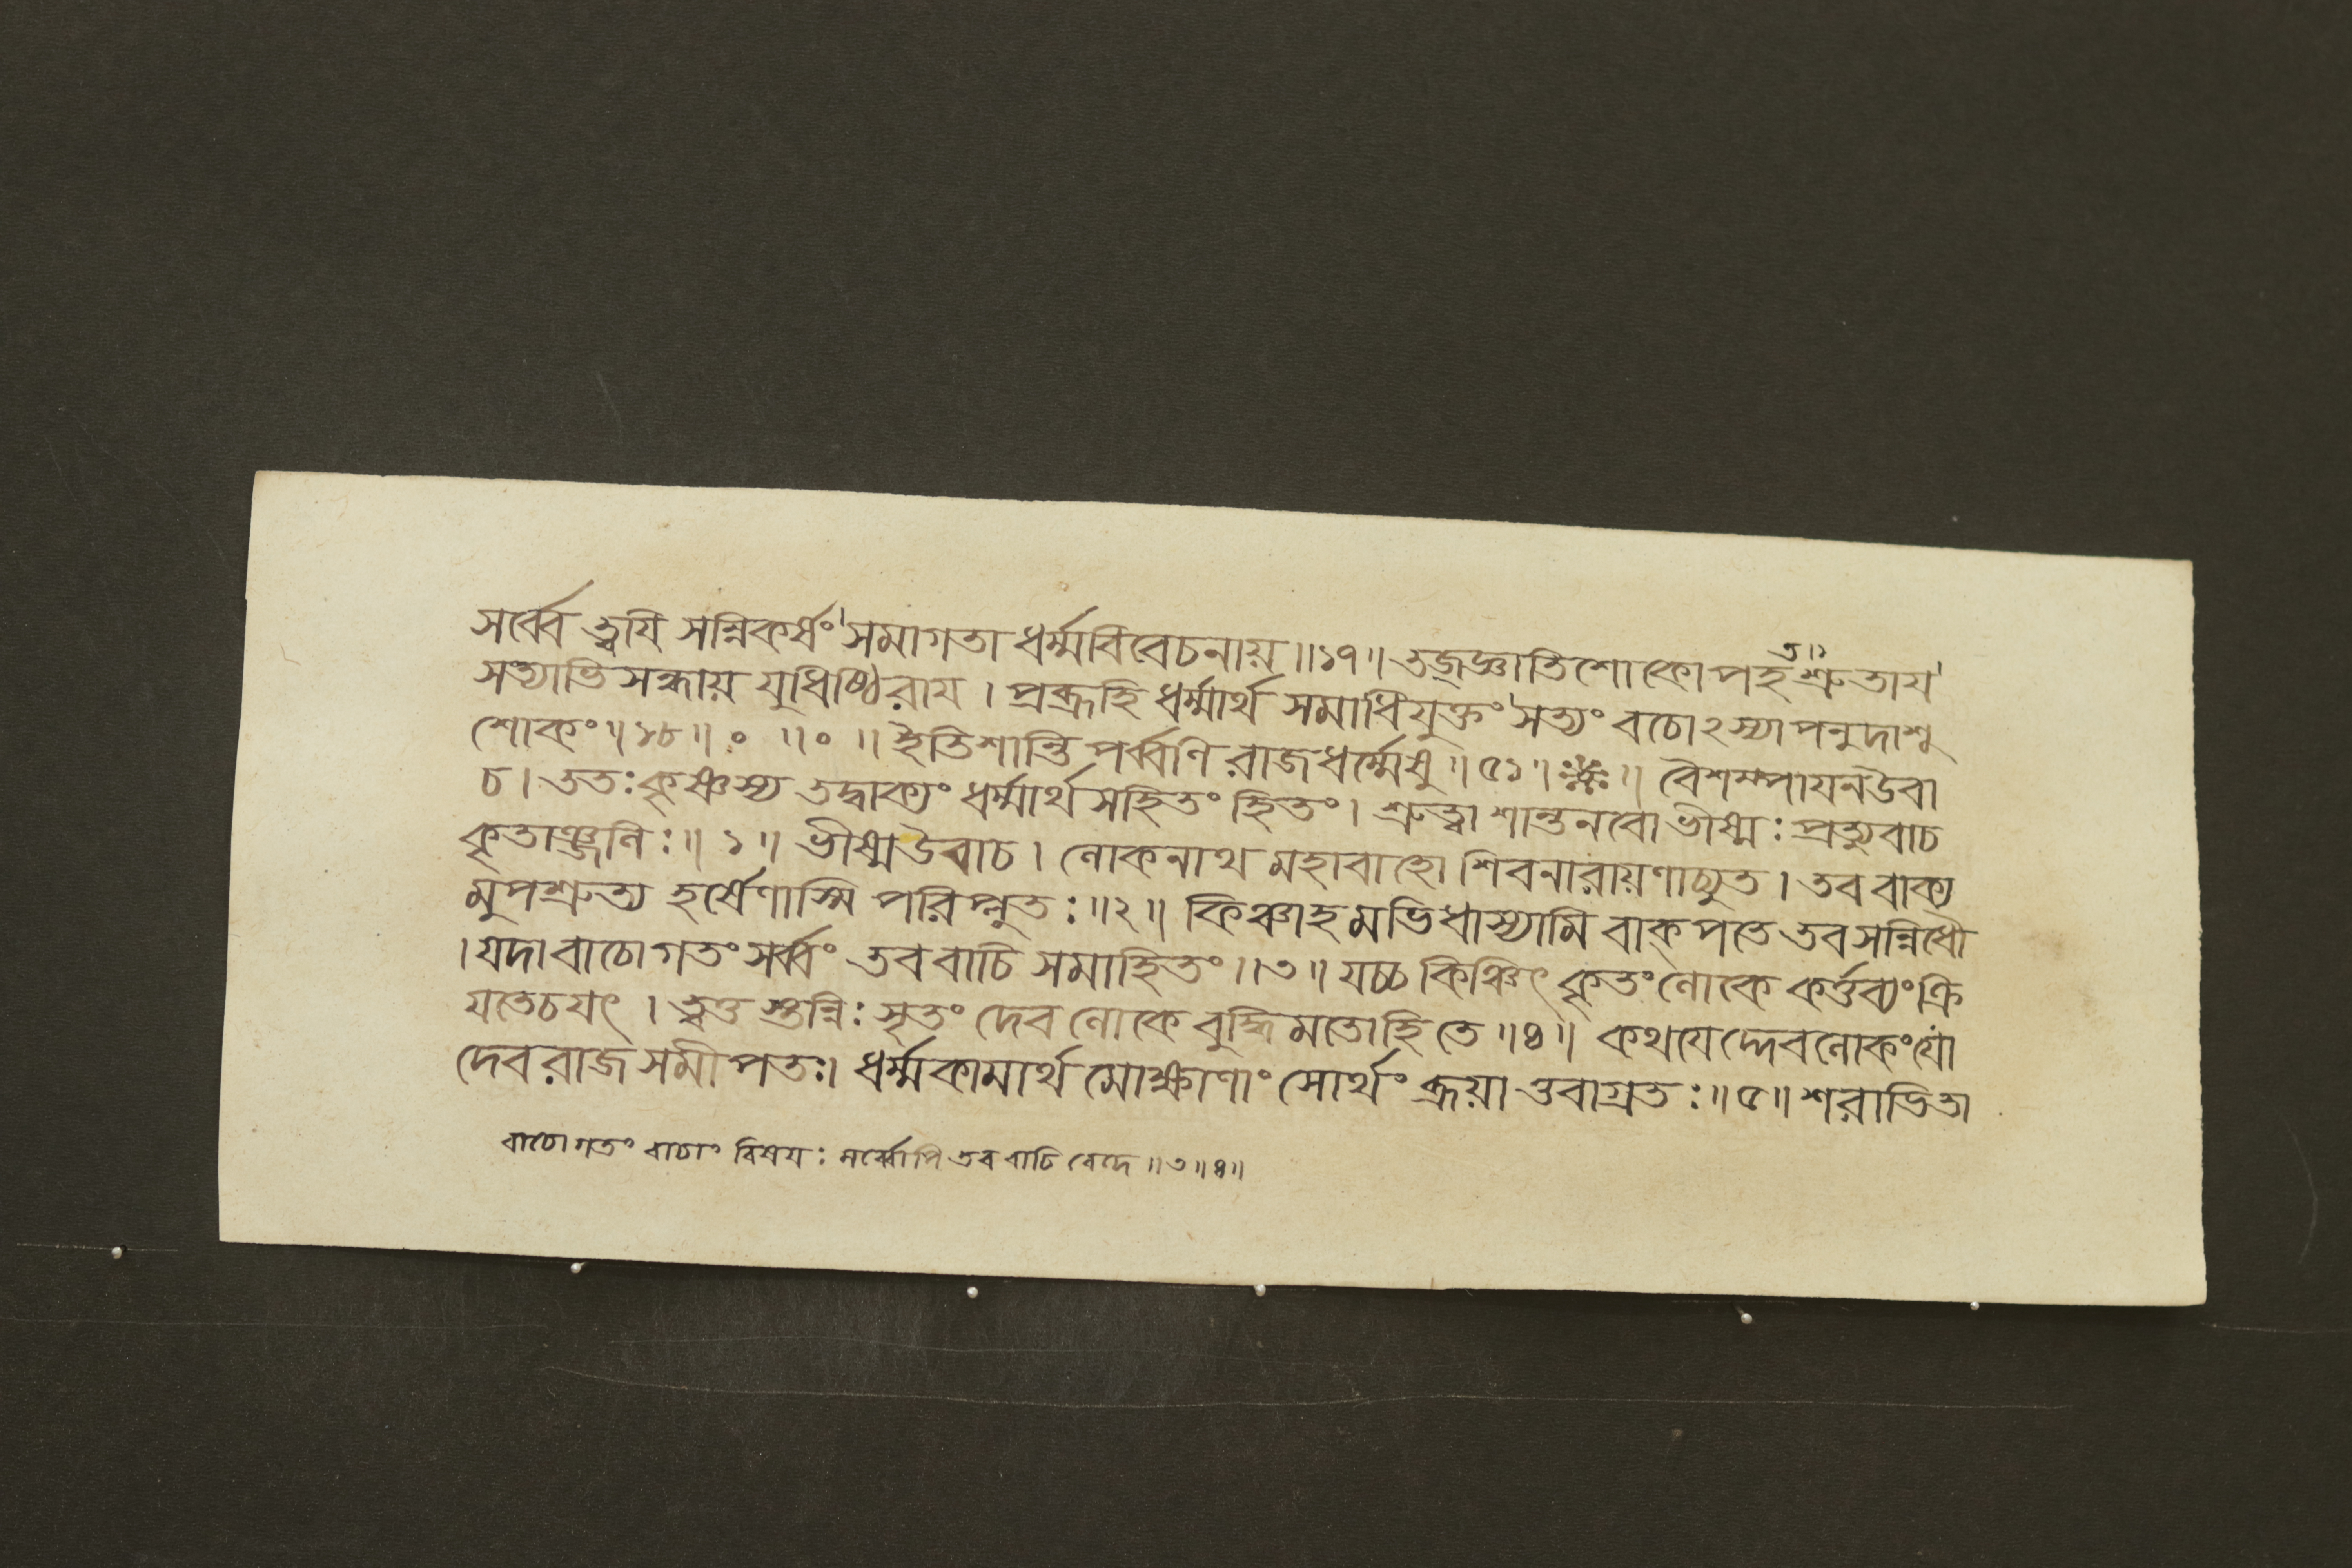 সর্ব্বে ত্বয়ি সন্নিকর্ষং সমাগতা ধর্ম্মবিবেচনায় ॥১৭॥ তজ্জ্ঞাতিশোকোপহতশ্রুতায়
সত্যাভিসন্ধায় যুধিষ্ঠিরায় । প্রব্রূহি ধর্ম্মার্থ সমাধিযুক্তং সত্যং বচোঽস্যাপনুদাশু
শোকং ॥১৮॥ ॰ ॥ ॰ ॥ ইতিশান্তি পর্ব্বণি রাজধর্ম্মেষু ॥ ৫১ ॥ ॥ বৈশম্পায়নউবা
চ । ততঃ কৃষ্ণস্য তদ্বাক্যং ধর্ম্মার্থ সহিতং হিতং । শ্রুত্বা শান্তনবো ভীষ্মঃ প্রত্যুবাচ
কৃতাঞ্জলিঃ ॥ ১ ॥ ভীষ্মউবাচ । লোকনাথ মহাবাহো শিবনারায়ণাচ্যুত । তব বাক্য
মুপশ্রুত্য হর্ষেণাস্মি পরিপ্লুতঃ ॥২॥ কিঞ্চাহমভিধাস্যামি বাক্পতে তবসন্নিধৌ
। যদা বাচোগতং সর্ব্বং তববাচি সমাহিতং ॥৩॥ যচ্চ কিঞ্চিৎ কৃতং লোকে কর্ত্তব্যং ক্রি
য়তেচযৎ । ত্বত্তস্তন্নিঃসৃতং দেব লোকে বুদ্ধিমতোহি তে ॥৪॥ কথয়েদ্দেবলোকং যো
দেবরাজ সমীপতঃ। ধর্ম্মকামার্থ মোক্ষাণাং সোর্থং ব্রূয়া ত্তবাগ্রতঃ ॥৫॥ শরাভিতা
বাচোগতং বাচাং বিষয়ঃ সর্ব্বোপি তব বাচি বেদে ॥৩॥৪॥